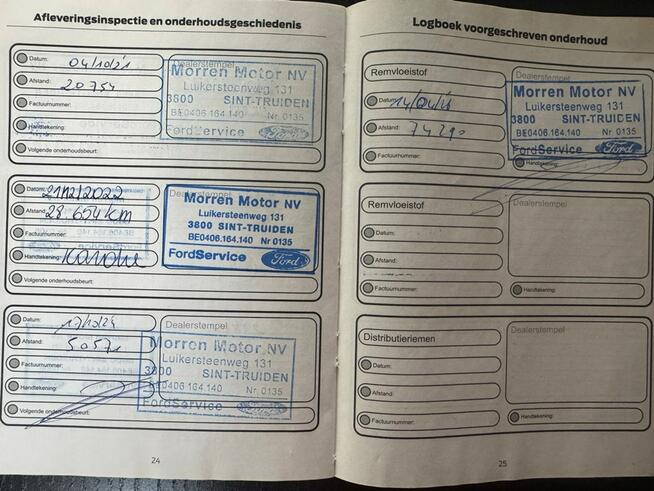 Afleveringsinspectie en onderhoudsgeschiedenis
Datum: 04/10/21
Afstand: 20754
Factuurnummer:
Handtekening:
Volgende onderhoudsbeurt:
Dealerstempel
Morren Motor NV
Luikersteenweg 131
3800 SINT-TRUIDEN
BE0406.164.140 Nr. 0135
FordService Ford
Datum: 21/12/2022
Afstand: 28 654 km
Factuurnummer:
Handtekening:
Volgende onderhoudsbeurt:
Morren Motor NV
Luikersteenweg 131
3800 SINT-TRUIDEN
BE0406.164.140 Nr 0135
FordService Ford
Datum:
Afstand:
Factuurnummer:
Handtekening:
Volgende onderhoudsbeurt:
Dealerstempel
Morren Motor NV
Luikersteenweg 131
3800 SINT-TRUIDEN
BE0406.164.140 Nr. 0135
FordService Ford
24
Logboek voorgeschreven onderhoud
Remvloeistof
Datum:
Afstand:
Factuurnummer:
Dealerstempel
Morren Motor NV
Luikersteenweg 131
3800 SINT-TRUIDEN
BE0406.164.140 Nr. 0135
FordService Ford
Handtekening:
Remvloeistof
Datum:
Afstand:
Factuurnummer:
Dealerstempel
Handtekening:
Distributieriemen
Datum:
Afstand:
Factuurnummer:
Dealerstempel
Handtekening:
25